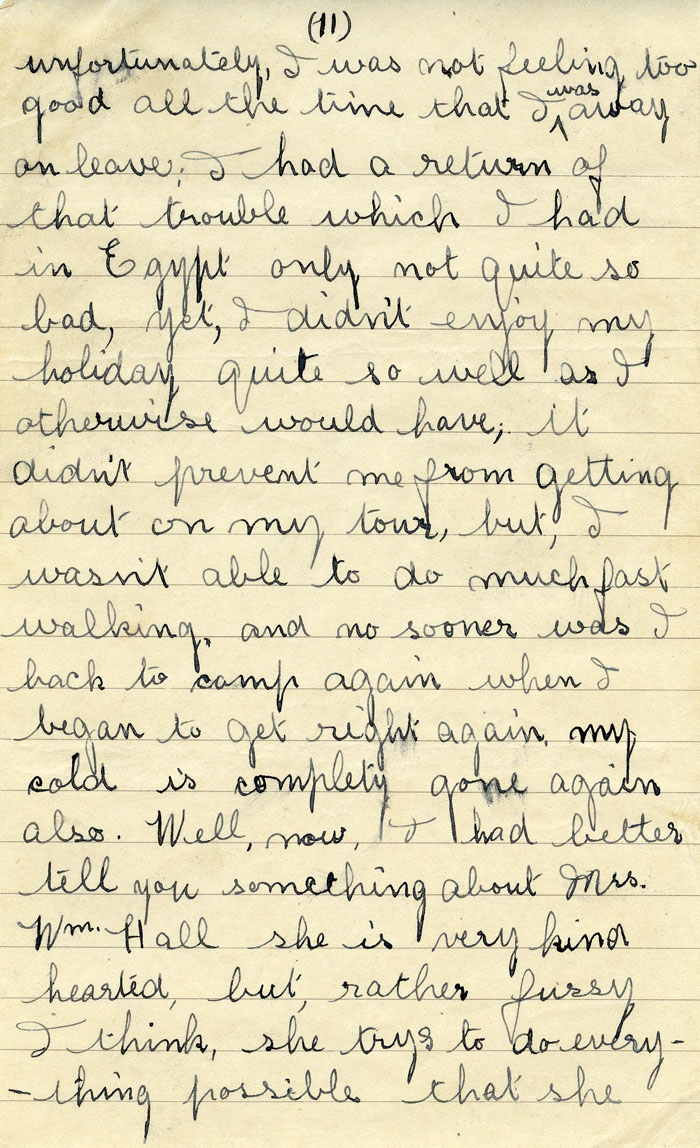 (11)
unfortunately, I was not feeling too
good all the time that I was away
on leave; I had a return of
that trouble which I had
in Egypt only not quite so
bad, yet, I didn't enjoy my
holiday quite so well as I
otherwise would have; it
didn't prevent me from getting
about on my tour, but, I
wasn't able to do much fast
walking, and no sooner was I
back to camp again when I
began to get right again, my
cold is complety gone again
also. Well, now, I had better
tell you something about Mrs.
Wm. Hall she is very kind
hearted, but, rather fussy
I think, she trys to do every-
-thing possible that she